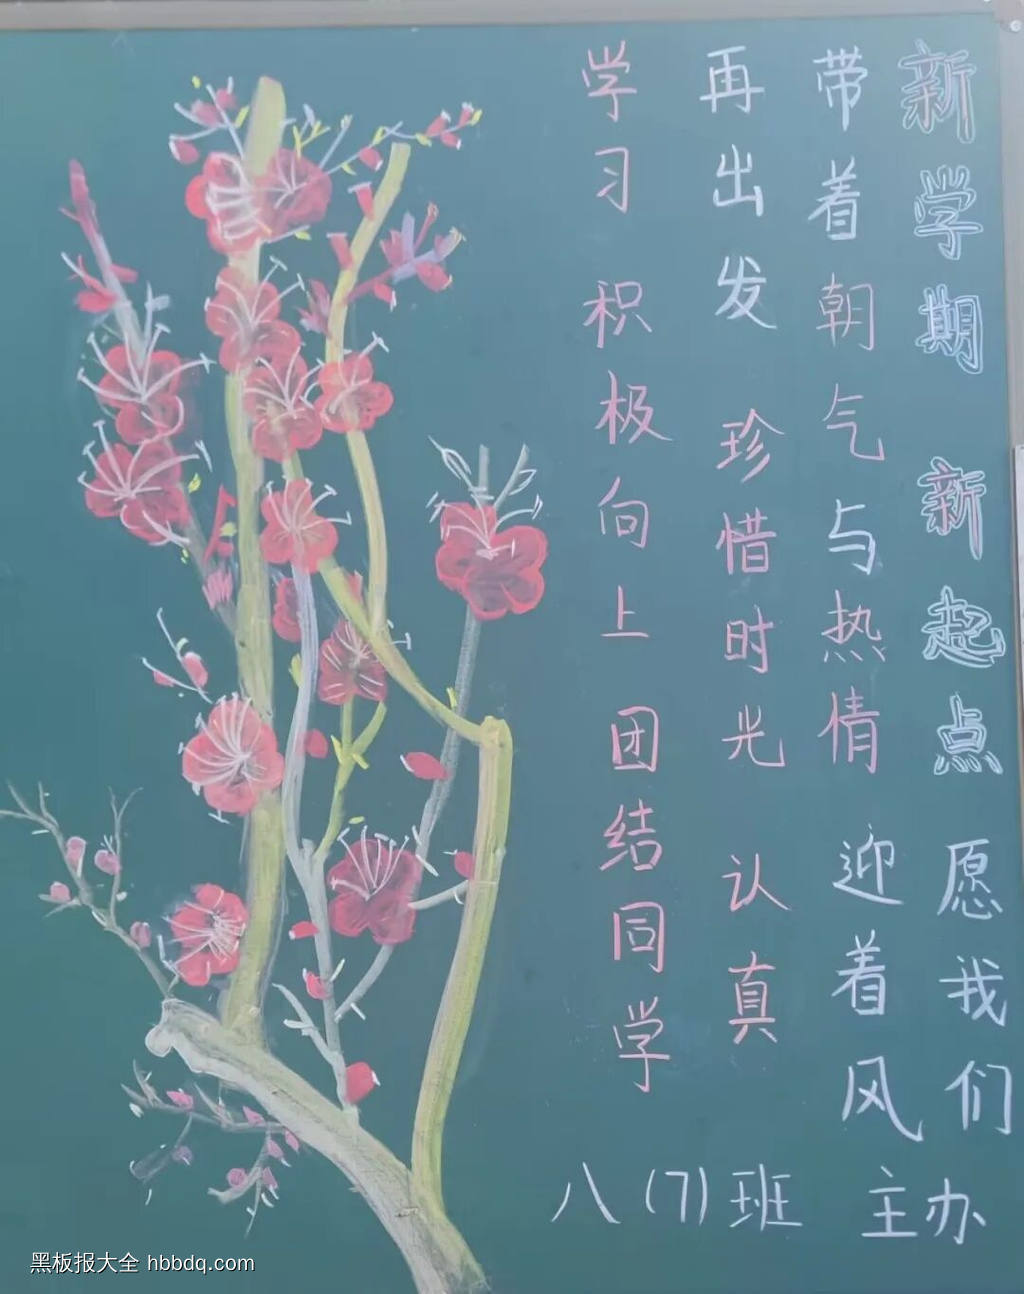 新学期 新起点 愿我们
带着朝气与热情 迎着风
再出发 珍惜时光 认真
学习 积极向上 团结同学
八(7)班 主办
黑板报大全 hbbdq.com